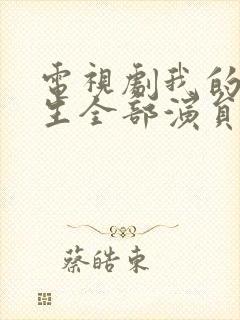 電視劇我的
生全部演員
蔡皓東